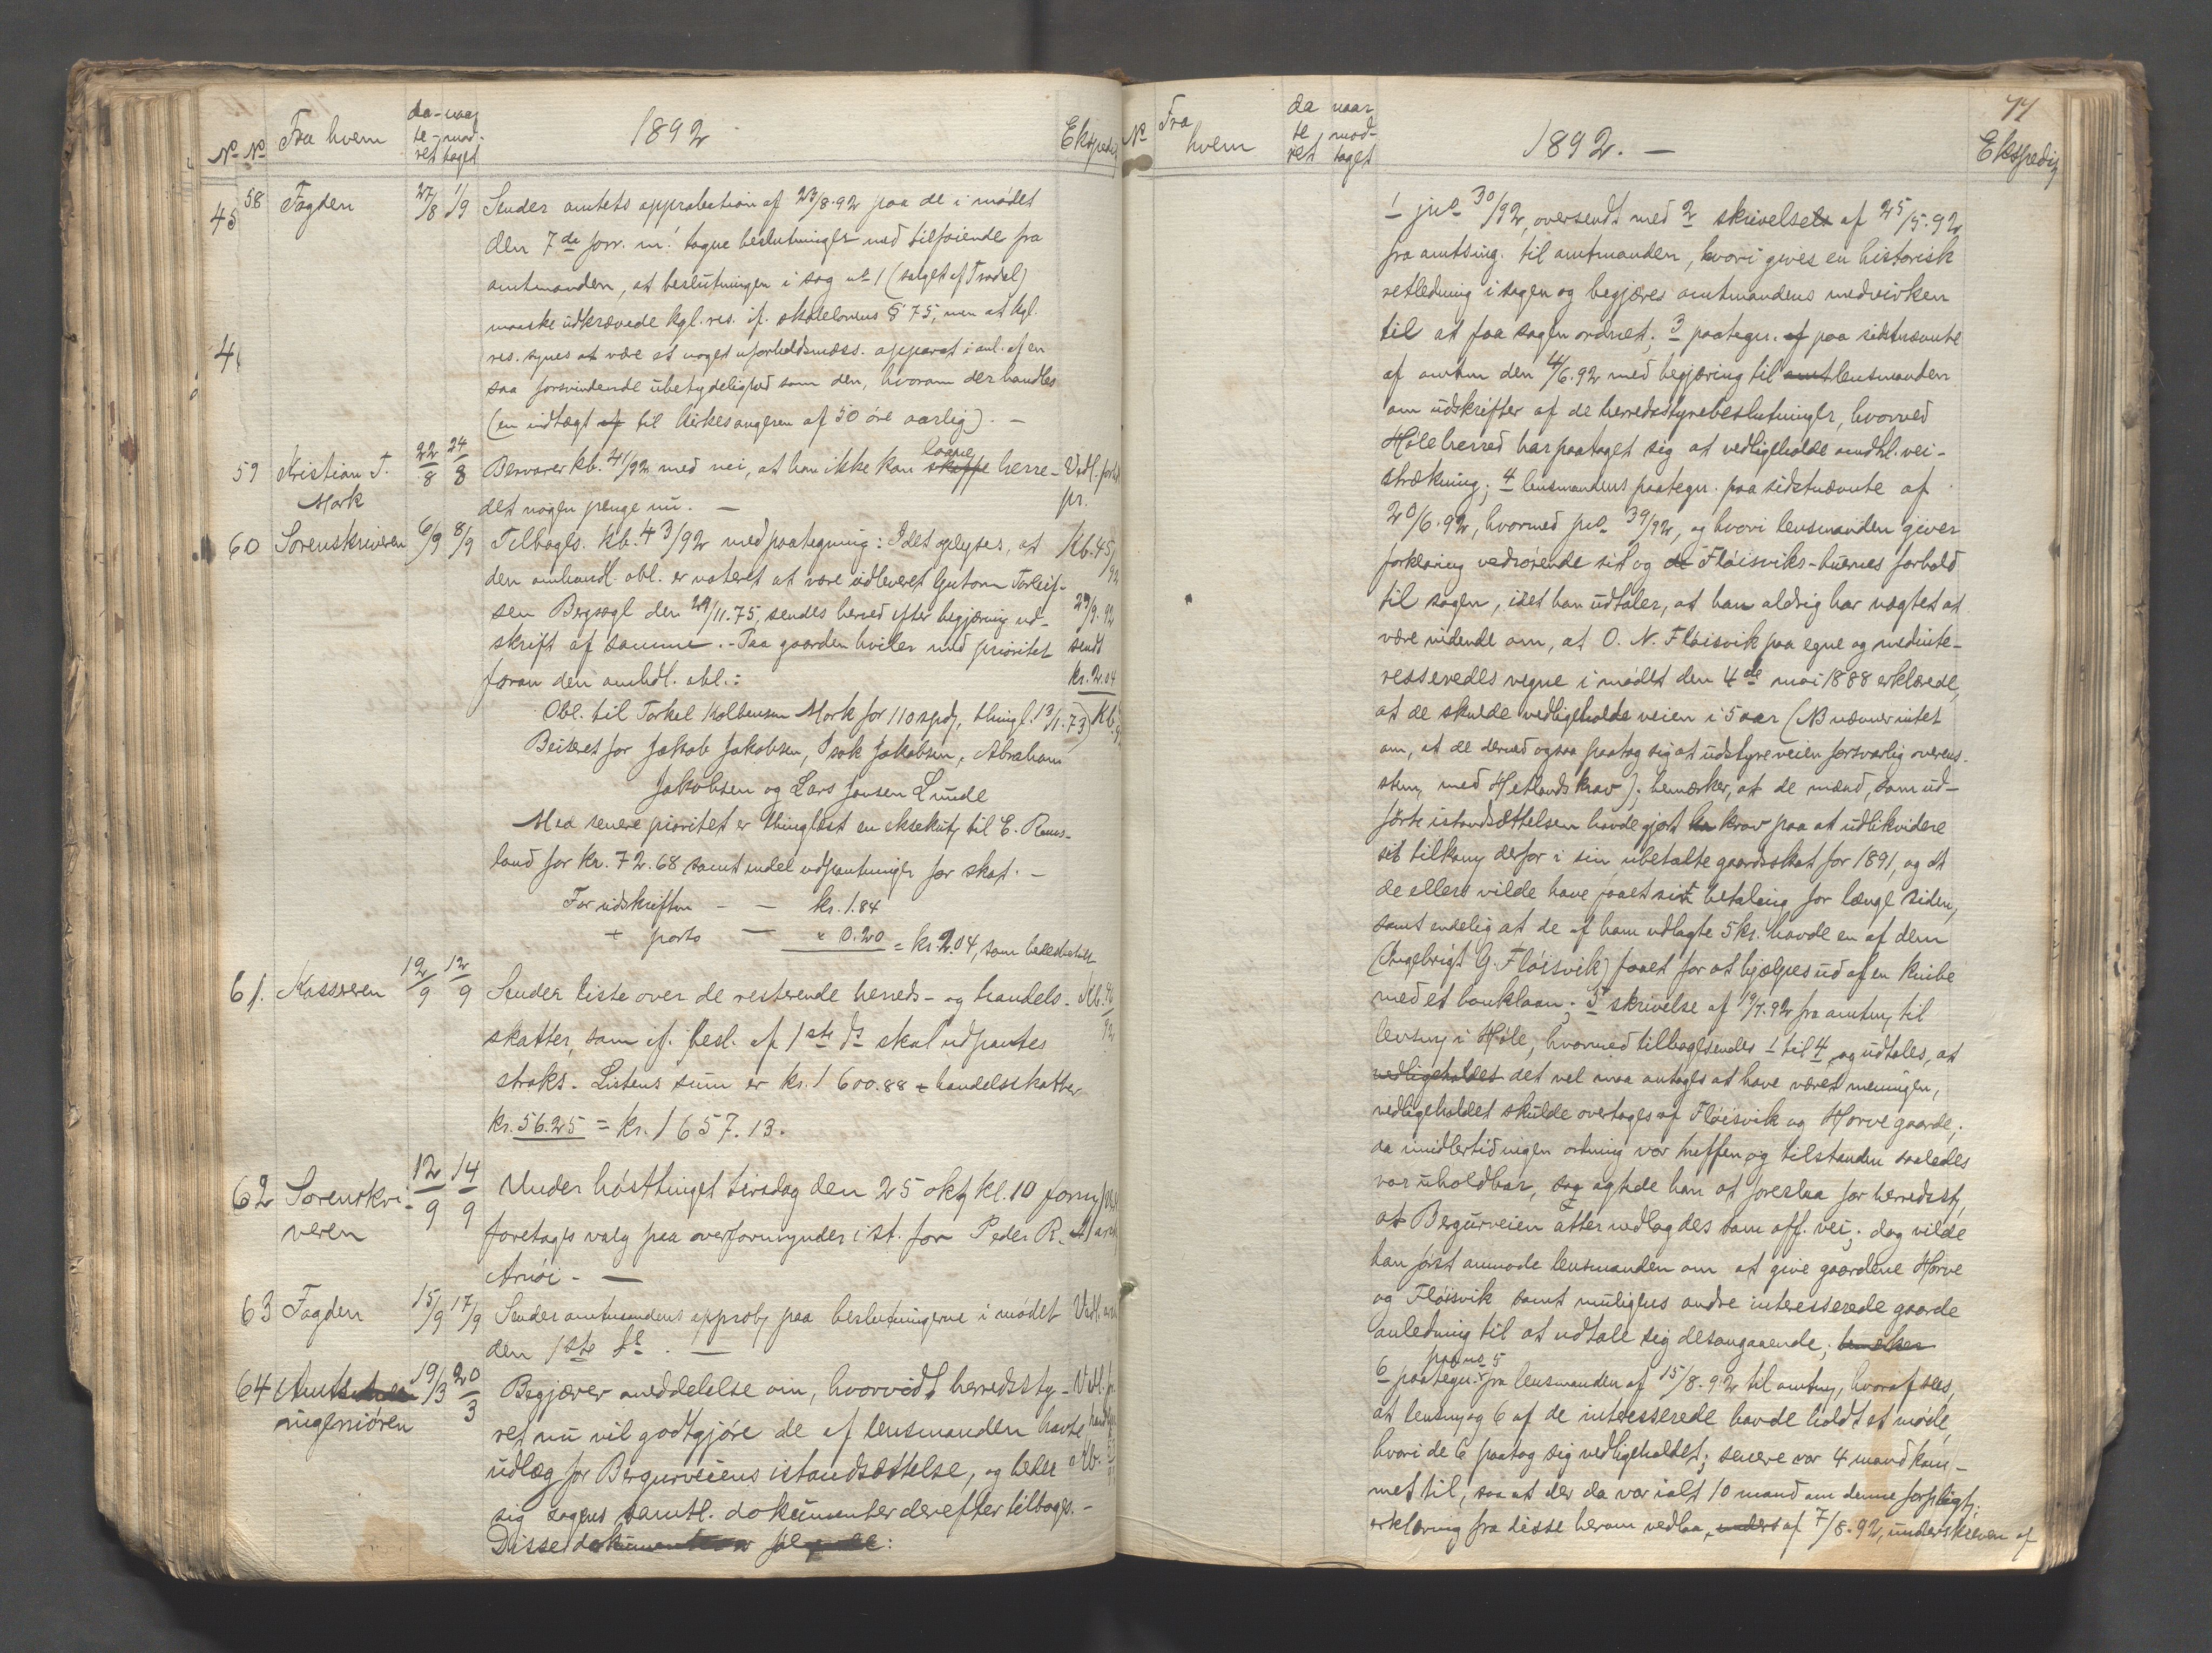 No No Fra hvem da-te-ret naar mod-taget 1892 Ekspedig
45 58 Fogden 27/8 1/9 Sender amtets approbation af 23/8.92 paa de i mødet
den 7de forr. m. tagne beslutninger med tilføiende fra
amtmanden, at beslutningen i sag no 1 (salget af Trodal)
maaske udkrævede kgl. res. if. skolelovens § 75, men at kgl.
4 res. synes at være et noget uforholdsmæss. apparat i anl. af en
saa forsvindende ubetydelighed som den, hvorom der handles
(en indtægt af til kirkesangeren af 50 øre aarlig). —
59 Kristian T. 22/8 24/8 Besvarer kb. 41/92 med nei, at han ikke kan skaffe laane herre- Vedl.
Mork det nogen penge nu. — pr.
60 Sorenskriveren 6/9 8/9 Tilbages. kb. 43/92 med paategning: Idet oplyses, at Kb. 45/92
den omhandl. obl. er noteret at være udleveret Gutorm Torkeif-
sen Bergsagl den 29/11.75, sendes herved efter begjæring ud- 29/9.92
skrift af samme. - Paa gaarden hviler med prioritet sendt
foran den omhdl. obl.: kr. 2.04
Obl. til Torkel Kolbensen Mork for 110 spdl, thingl. 13/1.73) Kb.
Beiteret for Jakob Jakobsen, Isak Jakobsen, Abraham
Jakobsen og Lars Jansen Lunde
Med senere prioritet er thinglæst en eksekutf til E. Rams-
land for kr. 72.68 samt endel udpantninger for skat. —
For udskriften - — kr. 1.84
+ porto — " 0.20 = kr. 2.04, som
61. Kassreren 12/9 12/9 Sender liste over de resterende herreds- og handels- Kb. 46/92
skatter, som if. besl. af 1ste ds skal udpantes
straks. Listens sum er kr. 1600.88 + handelsskatter
kr. 56.25 = kr. 1657.13.
62 Sorenskri- 12/9 14/9 Under høstthinget tirsdag den 25 oktf kl. 10 form
veren foretages valg paa overformynder i st. for Peder R.
Arnøi - —
63 Fogden 15/9 17/9 Sender amtmandens approbf paa beslutningerne i mødet Vedl.
den 1ste ds. —
64 Amts 19/3 20/3 Begjærer meddelelse om, hvorvidt herredssty- Vedl.
ingeniøren ret nu vil godtgjøre de af lensmanden havte
udlæg for Bergurveiens istandsættelse, og beder Kb.
sig sagens samtl. dokumenter derefter tilbages. -
Disse dokumenter er følgende:
77
No Fra hvem da-te-ret naar mod-taget 1892. — Ekspedig
1 jno 30/92, oversendt med 2 skrivelse af 25/5.92
fra amtsing. til amtmanden, hvori gives en historisk
retledning i sagen og begjæres amtmandens medvirken
til at faa sagen ordnet; 3 paategn. af paa sidstnævnte
af amtm den 14/6.92 med begjæring til amt lensmanden
om udskrifter af de herredsstyrebeslutninger, hvorved
Høle herred har paataget sig at vedligeholde omhdl. vei-
strækning; 4 lensmandens paategn. paa sidstnævnte af
20/6.92, hvormed jno 39/92, og hvori lensmanden giver
forklaring vedrørende sit og de Fløisviks-buernes forhold
til sagen, idet han udtaler, at han aldrig har nægtet at
være vidende om, at O. N. Fløisvik paa egne og medinte-
resseredes vegne i mødet den 4de mai 1888 erklærede,
at de skulde vedligeholde veien i 5 aar (NB nævner intet
om, at de derved ogsaa paatog sig at udstyre veien forsvarlig overens-
stem. med Hetlands krav); bemærker, at de mænd, som ud-
førte istandsættelsen havde gjort ha krav paa at udlikvidere
sit tilkom. derfor i sin ubetalte gaardsskat for 1891, og at
de ellers vilde have faaet sit betaling for længe siden,
samt endelig at de af ham udlagte 5 kr. havde en af dem
(Ingebrigt G. Fløisvik) faaet for at hjælpes ud af en knibe
med et banklaan; 5 skrivelse af 19/7.92 fra amtmf til
lensmf i Høle, hvormed tilbagesendes 1 til 4 og udtales, at
vedligeholdet det vel maa antages at have været meningen,
vedligeholdet skulde overtages af Fløisvik og Horve gaarde;
da imidlertid ingen ordning var truffen og tilstanden saaledes
var uholdbar, sag agtede han at foreslaa for herredsstf,
at Bergurveien atter nedlagdes som off. vei; dog vilde
han først anmode lensmanden om at give gaardene Horve
og Fløisvik samt muligens andre interesserede gaarde
anledning til at udtale sig desangaaende;
6 paategn. paa no 5 fra lensmanden af 15/8.92 til amtmf, hvoraf sees,
at lensmf og 6 af de interesserede havde holdt et møde,
hvori de 6 paatog sig vedligeholdet; senere var 4 mand kom-
met til, saa at der da var ialt 10 mand om denne forpligtf;
erklæring fra disse herom vedlaa, af 7/8.92, underskreven af